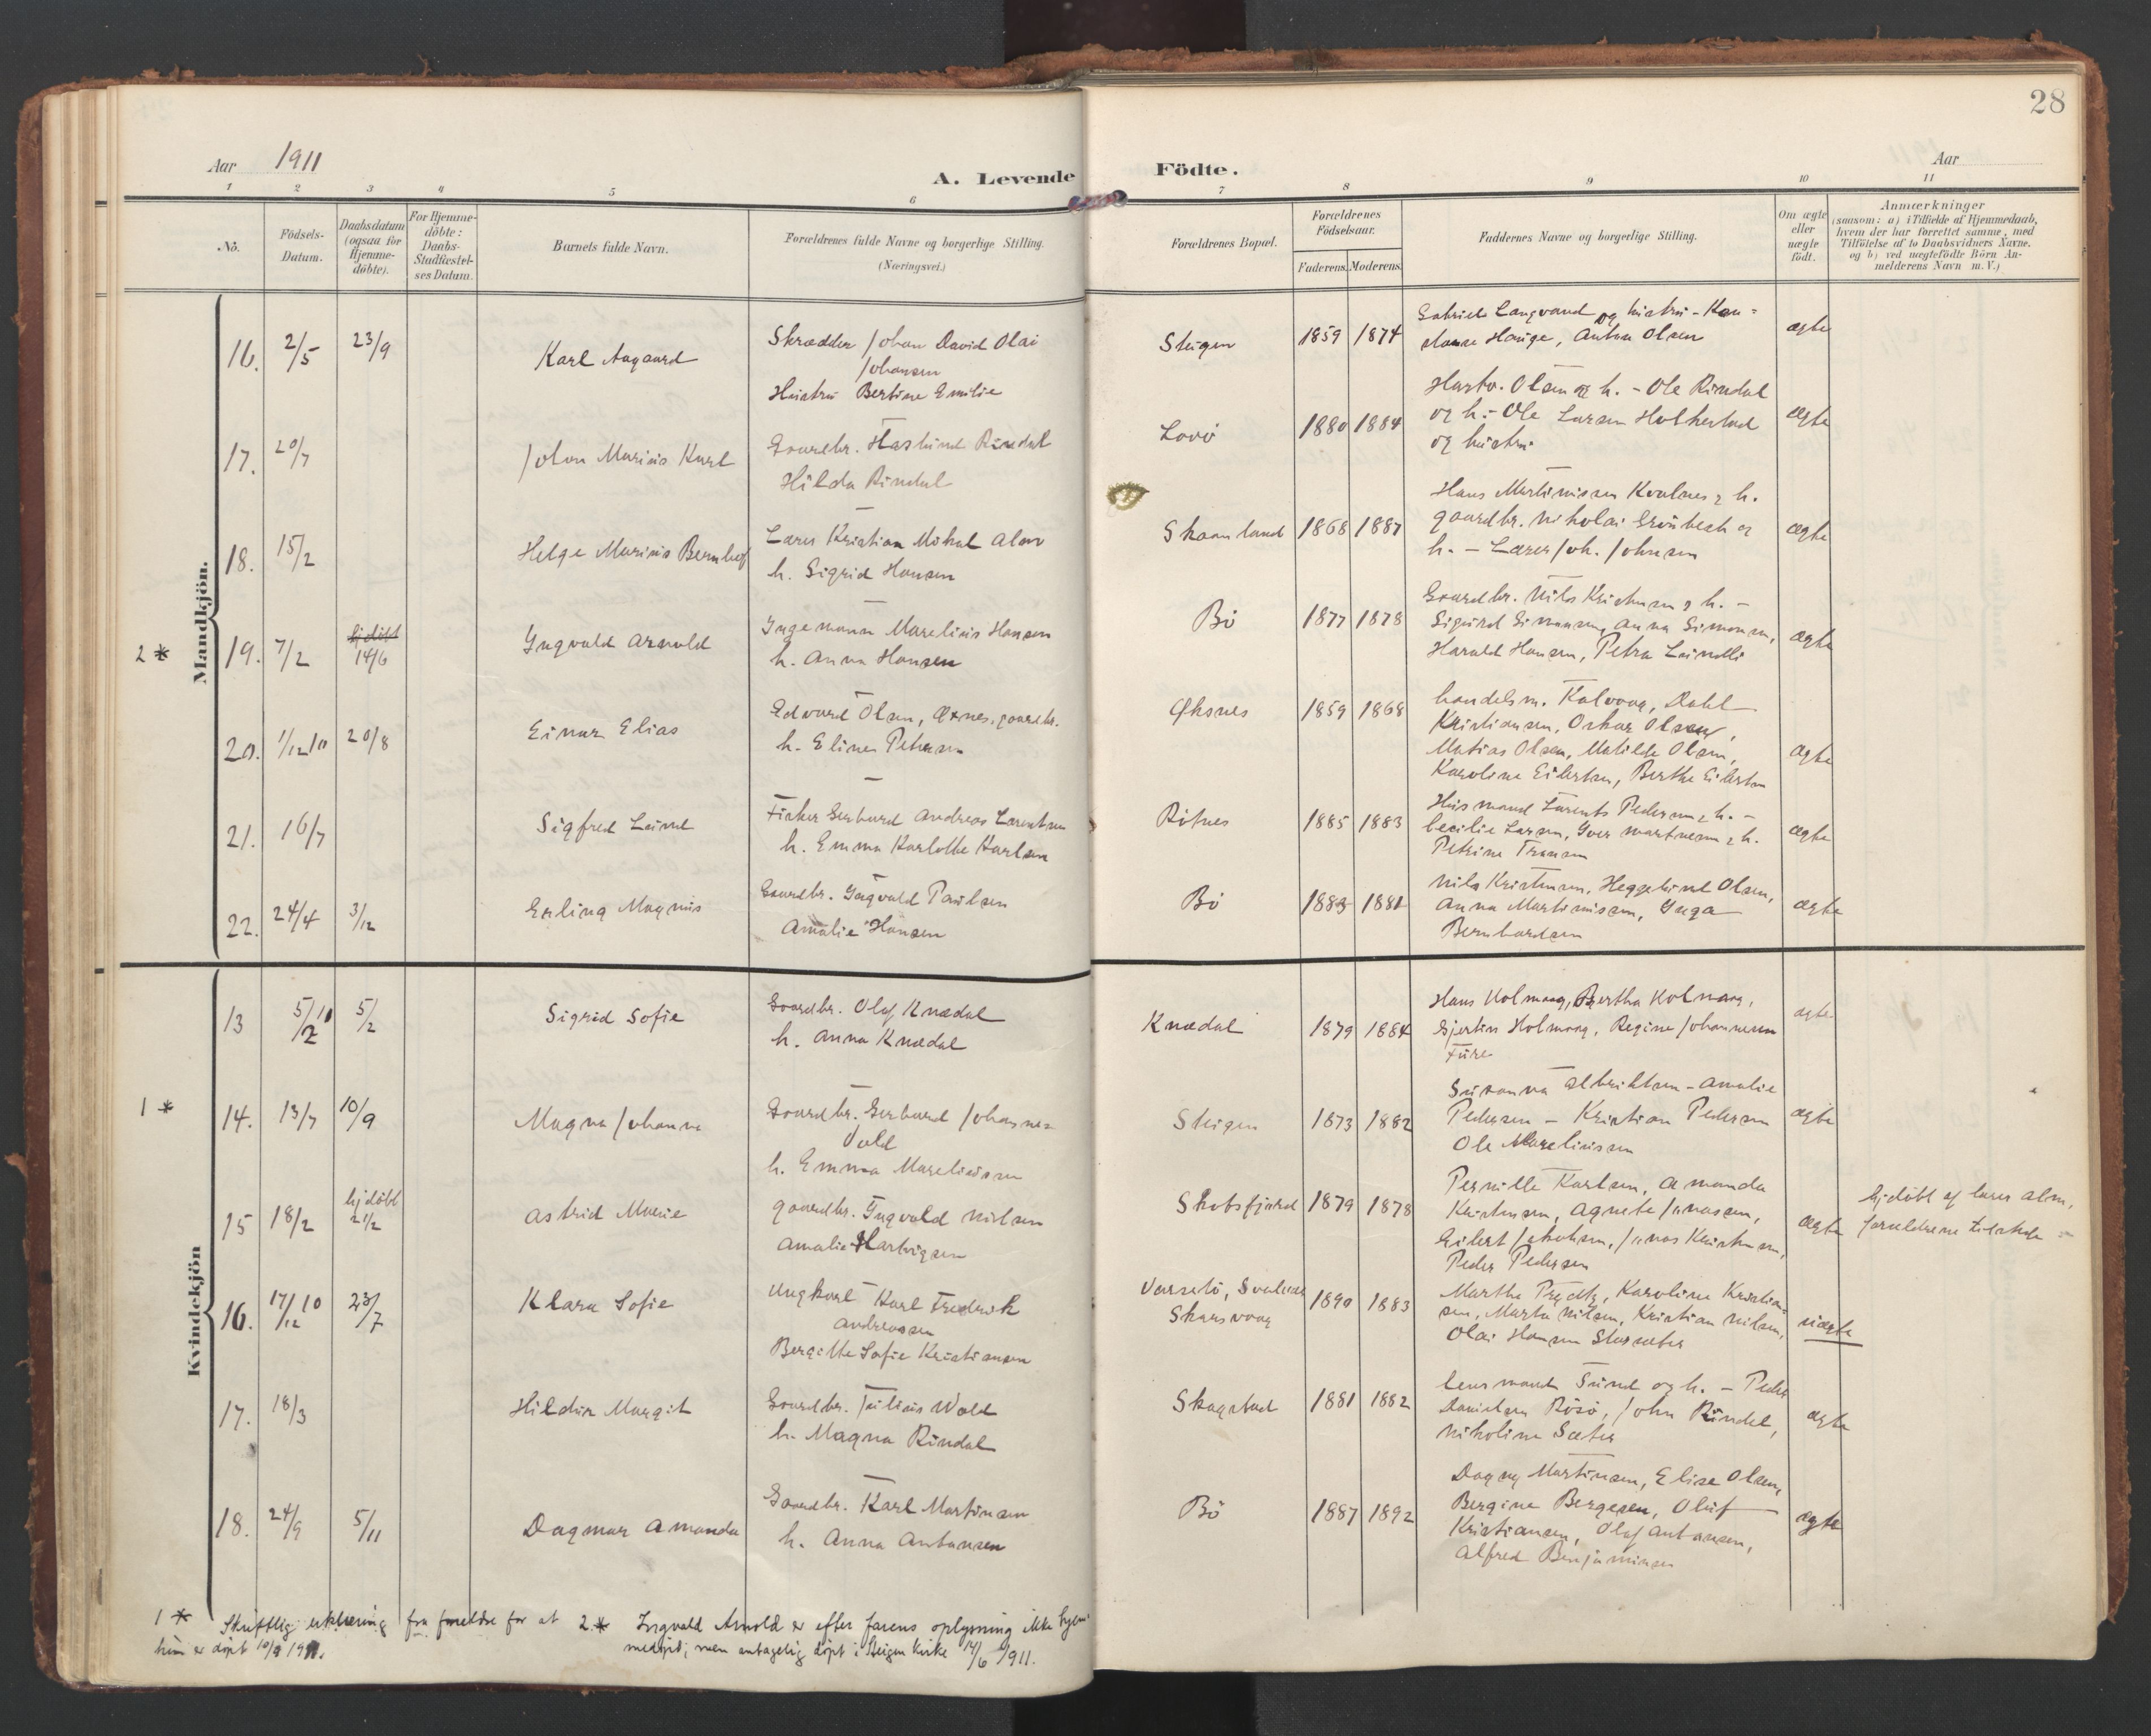 28
Aar 1911
A. Levende Födte.
Aar
1 2 3 4 5 6 7 8 9 10 11
No.
Födsels-Datum.
Daabsdatum (ogsaa for Hjemmedöbte).
For Hjemmedöbte: Daabs-Stadfæstelses Datum.
Barnets fulde Navn.
Forældrenes fulde Navne og borgerlige Stilling. (Næringsvei.)
Forældrenes Bopæl.
Forældrenes Födselsaar.
Faderens. Moderens.
Faddernes Navne og borgerlige Stilling.
Om ægte eller uægte födt.
Anmærkninger
(saasom: a) i Tilfælde af Hjemmedaab, hvem der har forrettet samme, med Tilföielse af to Daabsvidners Navne, og b) ved uægtefödte Börn Anmelderens Navn m. V.)
Mandkjön.
16. 2/5 23/9 Karl Aagaard
Skrædder Johan David Olai
Johansen
Hustru Bertine Emilie
Steigen 1859 1874
Gabriel Langvand og hustru - Kon-
stanse Hauge, Anton Olsen
ægte
17. 20/7 Johan Marius Karl
Gaardbr. Haslund Rindal
Hilda Rindal
Lovö 1880 1884
Hartv. Olsen og h. - Ole Rindal
og h. - Ole Larsen Holkestad
og hustru
ægte
18. 15/2 Helge Marius Bernhof
Lærer Kristian Mikal Alm
h. Sigrid Hansen
Skaanland 1868 1887
Hans Martinissen Kvalnes & h.
gaardbr. Nikolai Grönbech og
h. - Lærer Joh. Johnsen
ægte
2 * 19. 7/2 hjdöbt 14/6 Ingvald Arnold
Ingemann Marelius Hansen
h. Anna Hansen
Bö 1877 1878
Gaardbr. Nils Kristensen & h. -
Sigurd Simonsen, Anna Simonsen,
Harald Hansen, Petra
ægte
20. 1/12 10 20/8 Einar Elias
Edvard Olsen, gaardbr.
h. Eline Petersen
Øksnes 1859 1868
handelsm. Kalvaag, Dahl
Kristiansen, Oskar Olsen,
Matias Olsen, Matilde Olsen,
Karoline Eilertsen, Berthe Eilertsen
ægte
21. 16/7 Sigfred
Fisker Gerhard Andreas Larentsen
h. Emma Karlotte Karlsen
Rötnes 1885 1883
Husmand Larents Pedersen & h. -
Cecilie Larsen, Iver Martinsen & h.
Petrine
ægte
22. 24/4 3/12 Erling Magnus
Gaardbr. Ingvald Paulsen
Amalie Hansen
Bö 1883 1881
Nils Kristensen, Olsen,
Anna Martinissen, Inga
Bernhardsen
ægte
Kvindekjön
13 5/2 10 5/2 Sigrid Sofie
Gaardbr. Olaf Knædal
h. Anna Knædal
Knædal 1879 1884
Hans Holmaag, Bertha Holmaag,
Holmaag, Regine Johannesen
Fure
ægte
1 * 14. 13/7 10/9 Magna Johanna
Gaardbr. Gerhard Johannes
Vold
h. Emma Mareliussen
Steigen 1873 1882
Susanna Albriktsen - Amalie
Pedersen - Kristian Pedersen
Ole Mareliussen
ægte
15 18/2 hjdöbt 21/2 Astrid Marie
gaardbr. Ingvald Nilsen
Amalie Hartvigsen
Skotsfjord 1879 1878
Pernille Karlsen, Amanda
Kristensen, Agnete Jonassen,
Eilert Jakobsen, Jonas Kristensen,
Peder Pedersen
ægte
hjdöbt af lærer Alm,
forældrene tilstede
16. 17/12 10 23/7 Klara Sofie
Ungkarl Karl Fredrik
Andreassen
Bergitte Sofie Kristiansen
Svolvær
Skarsvaag 1890 1883
Marthe Karoline Kristian-
sen, Marta Nilsen, Kristian Nilsen,
Olai Hansen
uægte
17. 18/3 Hildur Margit
Gaardbr. Julius Wold
h. Magna Rindal
Skagstad 1881 1882
lensmand Sund og h. - Peder
Danielsen Rösö, John Rindal,
Nikoline Sæter
ægte
18. 24/9 5/11 Dagmar Amanda
Gaardbr. Karl Martinsen
h. Anna Antonsen
Bö 1887 1892
Dagny Martinsen, Elise Olsen,
Bergine Bergesen, Oluf
Kristiansen, Olaf Antonsen,
Alfred Benjaminsen
ægte
1 * Skriftlig erklæring fra forældre for at
hun er döpt 10/9 1911.
2 * Ingvald Arnold er efter farens oplysning ikke hjem-
medöpt, men antagelig döpt i Steigen kirke 14/6 1911.